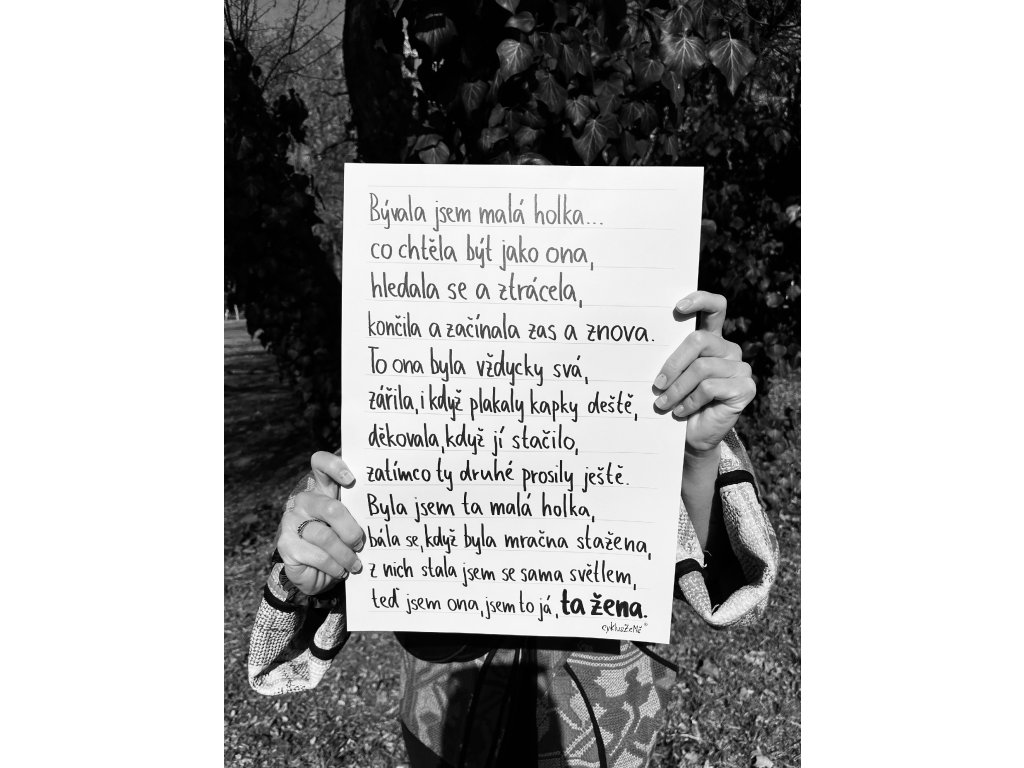 Bývala jsem malá holka...
co chtěla být jako ona,
hledala se a ztrácela,
končila a začínala zas a znova.
To ona byla vždycky svá,
zářila, i když plakaly kapky deště,
děkovala, když jí stačilo,
zatímco ty druhé prosily ještě.
Byla jsem ta malá holka,
bála se, když byla mračna stažena,
z nich stala jsem se sama světlem,
teď jsem ona, jsem to já, ta žena.
cyklusZeMě ©